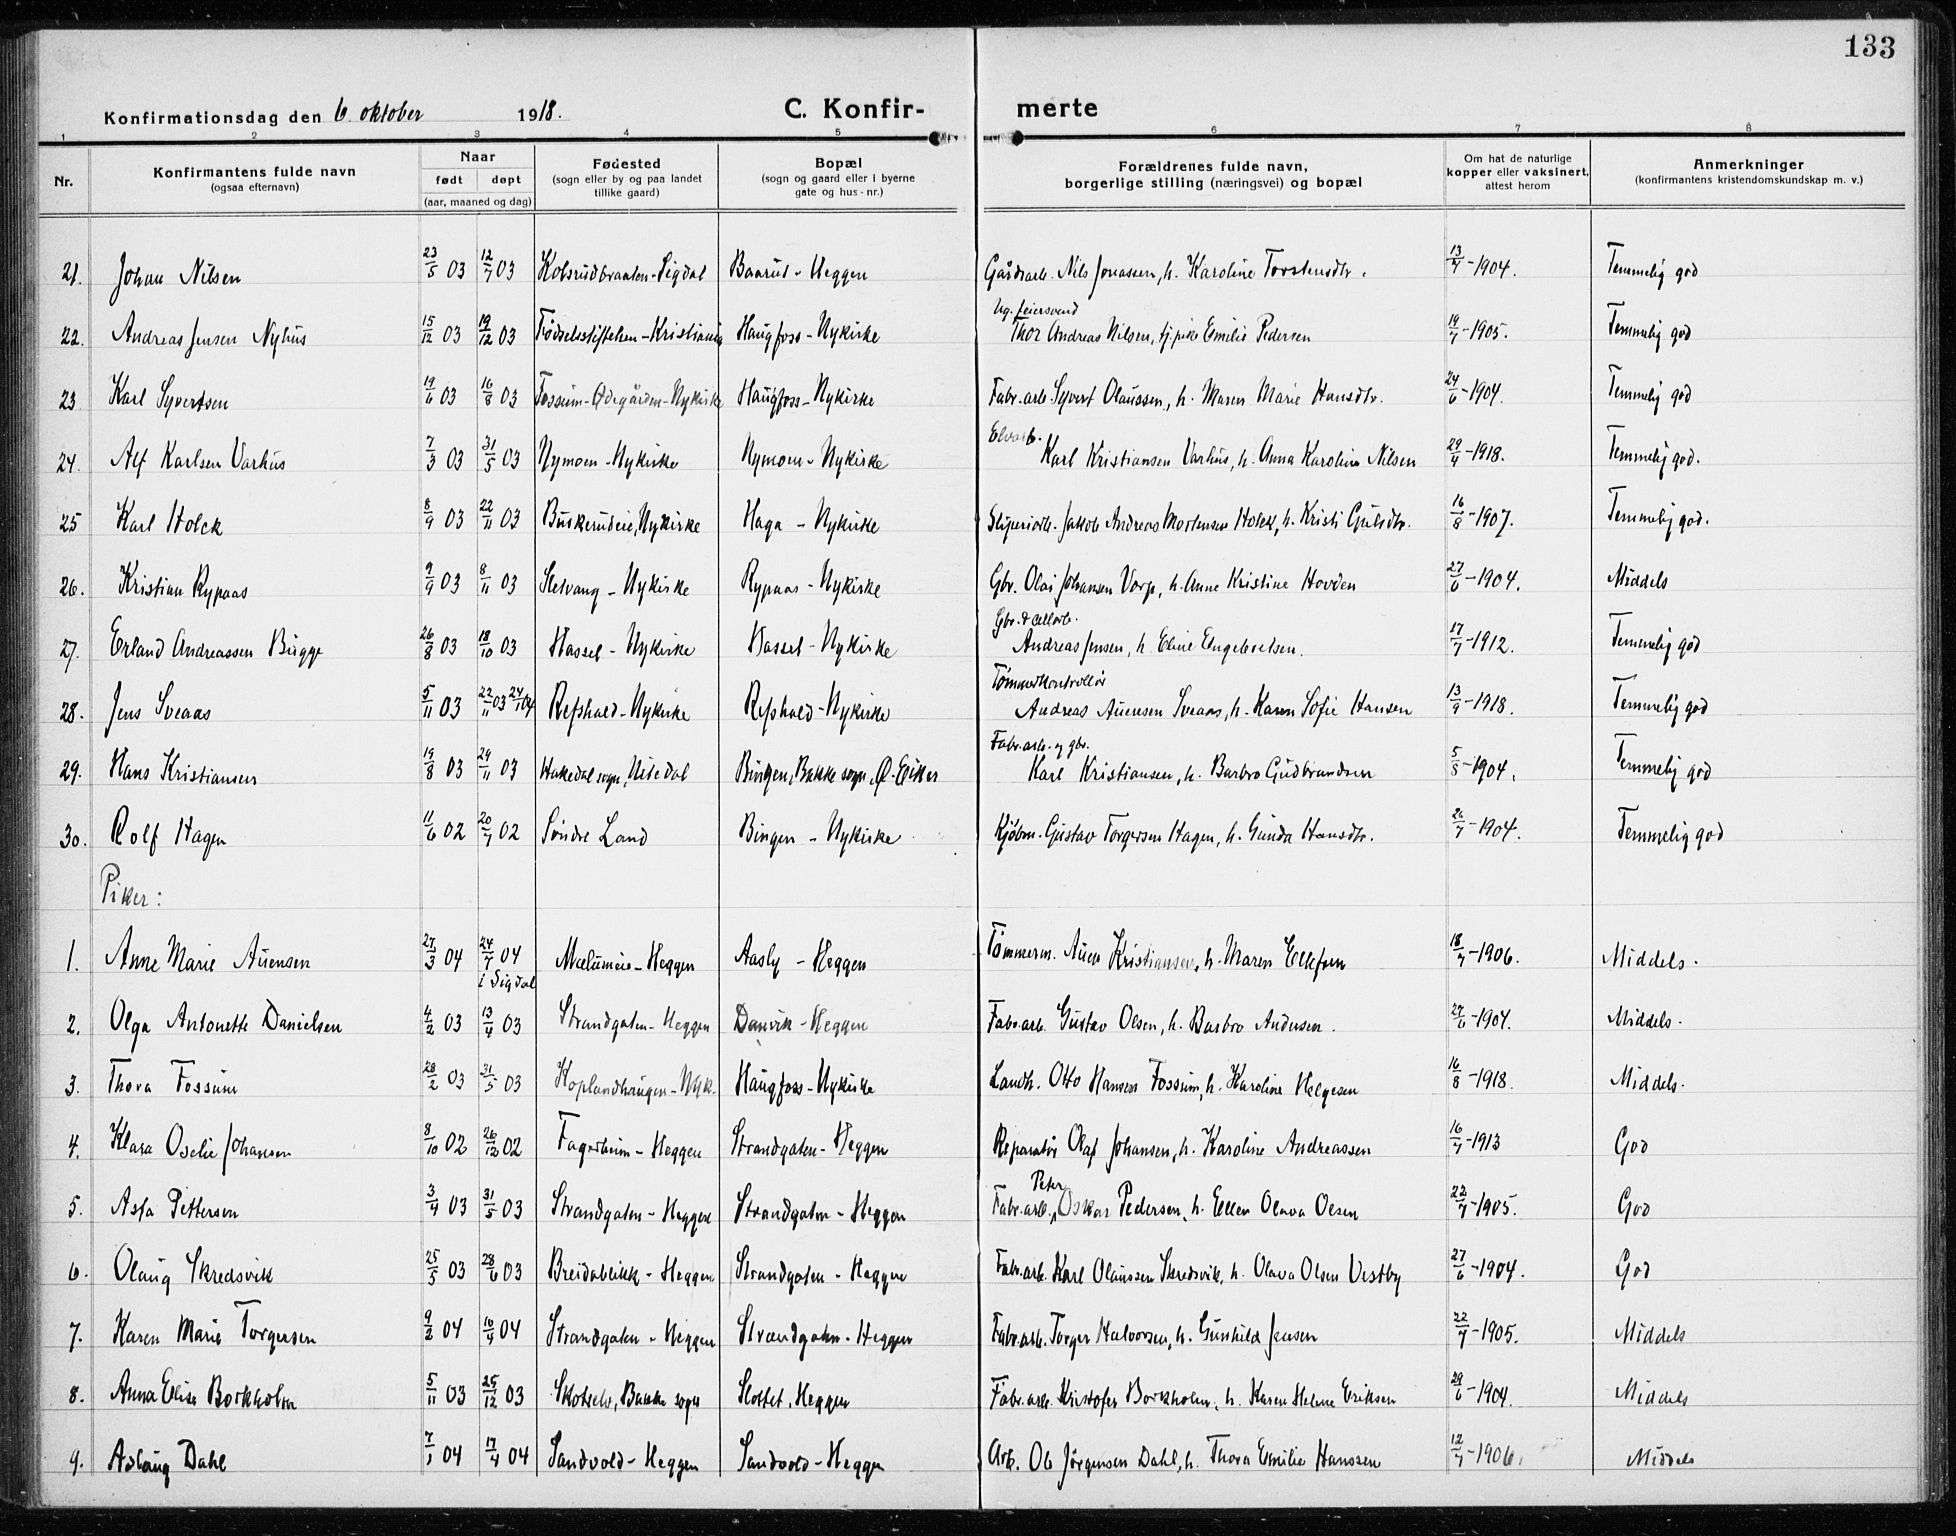 133
Konfirmationsdag den 6. oktober 1918.
C. Konfirmerte
1 2 3 4 5 6 7 8
Nr. | Konfirmantens fulde navn (ogsaa efternavn) | Naar født døpt (aar, maaned og dag) | Fødested (sogn eller by og paa landet tillike gaard) | Bopæl (sogn og gaard eller i byerne gate og hus-nr.) | Forældrenes fulde navn, borgerlige stilling (næringsvei) og bopæl | Om hat de naturlige kopper eller vaksinert, attest herom | Anmerkninger (konfirmantens kristendomskundskap m. v.)
21. Johan Nilsen 23/5 03 12/7 03 Kolsrudbraaten - Sigdal Baarud - Heggen Gårdsarb. Nils Jonassen, h. Karoline Torstensdtr. 13/7 - 1904. Temmelig god
22. Andreas Jensen Nyhus 15/12 03 19/12 03 Fødselsstiftelsen - Kristiania Haugfoss - Nykirke Ug. feiersvend Thor Andreas Nilsen, tj.pike Emilie Pedersen 19/7 - 1905. Temmelig god
23 Karl Syvertsen 19/6 03 16/8 03 Fossum - Ødegården - Nykirke Haugfoss - Nykirke Fabr. arb. Syvert Olaussen, h. Maren Marie Hansdtr. 24/6 - 1904. Temmelig god
24. Alf Karlsen Varhus 7/3 03 31/5 03 Nymoen - Nykirke Nymoen - Nykirke Elvarb. Karl Kristiansen Varhus, h. Anna Karoline Nilsen 29/4 - 1918. Temmelig god.
25 Karl Holck 8/9 03 22/11 03 Buskerudeie, Nykirke Haga - Nykirke Sliperiarb. Jakob Andreas Mortensen Holck, h. Kristi Gulsdtr. 16/8 - 1907. Temmelig god.
26. Kristian Rypaas 9/9 03 8/11 03 Sletvang - Nykirke Rypaas - Nykirke Gbr. Olai Johansen Vorp, h. Anne Kristine Hovden 27/6 - 1904. Middels
27. Erland Andreassen Bugge 26/8 03 18/10 03 Hassel - Nykirke Hassel - Nykirke Gbr. & cellarb. Andreas Jensen, h. Eline Engebretsen. 17/7 - 1912. Temmelig god
28. Jens Sveaas 5/11 03 22/11 03 24/1 04 Refshald - Nykirke Refshald - Nykirke Tømmerkontrollør Andreas Auensen Sveaas, h. Karen Sofie Hansen 13/9 - 1918. Temmelig god
29. Hans Kristiansen 19/8 03 29/11 03 Hakedal sogn, Nitedal Bingen, Bakke sogn, Ø. Eiker Fabr. arb. og gbr. Karl Kristiansen, h. Barbro Gudbrandsen 5/8 - 1904. Temmelig god
30. Rolf Hagen 11/6 02 20/7 02 Søndre Land Bingen - Nykirke Kjøbm. Gustav Torgersen Hagen, h. Gunda Hansdtr. 26/7 - 1904. Temmelig god
Piker:
1. Anne Marie Auensen 27/3 04 24/7 04 i Sigdal Mælumeie - Heggen Aasly - Heggen Tømmerm. Auen Kristiansen, h. Maren Ellefsen 18/7 - 1906. Middels.
2. Olga Antonette Danielsen 4/2 03 13/4 03 Strandgaten - Heggen Danvik - Heggen Fabr. arb. Gustav Olsen, h. Barbro Andersen. 27/6 - 1904. Middels.
3. Thora Fossum 28/2 03 31/5 03 Koplandhaugen - Nyk. Haugfoss - Nykirke Landh. Otto Hansen Fossum, h. Karoline Helgesen 16/8 - 1918. Middels.
4. Klara Oselie Johansen 8/10 02 26/12 02 Fagerheim - Heggen Strandgaten - Heggen Reparatør Olaf Johansen, h. Karoline Andreassen 16/7 - 1913 God
5. Asta Pettersen 3/4 03 31/5 03 Strandgaten - Heggen Strandgaten - Heggen Fabr. arb. Peter Oskar Pedersen, h. Ellen Olava Olsen 22/7 - 1905. God
6. Olaug Skredsvik 25/5 03 28/6 03 Breidablikk - Heggen Strandgaten - Heggen Fabr. arb. Karl Olaussen Skredsvik, h. Olava Olsen Vestby 27/6 - 1904. God
7. Karen Marie Torgersen 9/2 04 10/4 04 Strandgaten - Heggen Strandgaten - Heggen Fabr. arb. Torger Halvorsen, h. Gunhild Jensen 22/7 - 1905. Middels
8. Anna Elise Borkholm 5/11 03 25/12 03 Skotselv, Bakke sogn Slottet, Heggen Fabr. arb. Kristofer Borkholm, h. Karen Helene Eriksen 29/6 - 1904. Middels
9. Aslaug Dahl 7/1 04 17/4 04 Sandvold - Heggen Sandvold - Heggen Arb. Ole Jørgensen Dahl, h. Thora Emilie Hanssen 12/7 - 1906. Middels